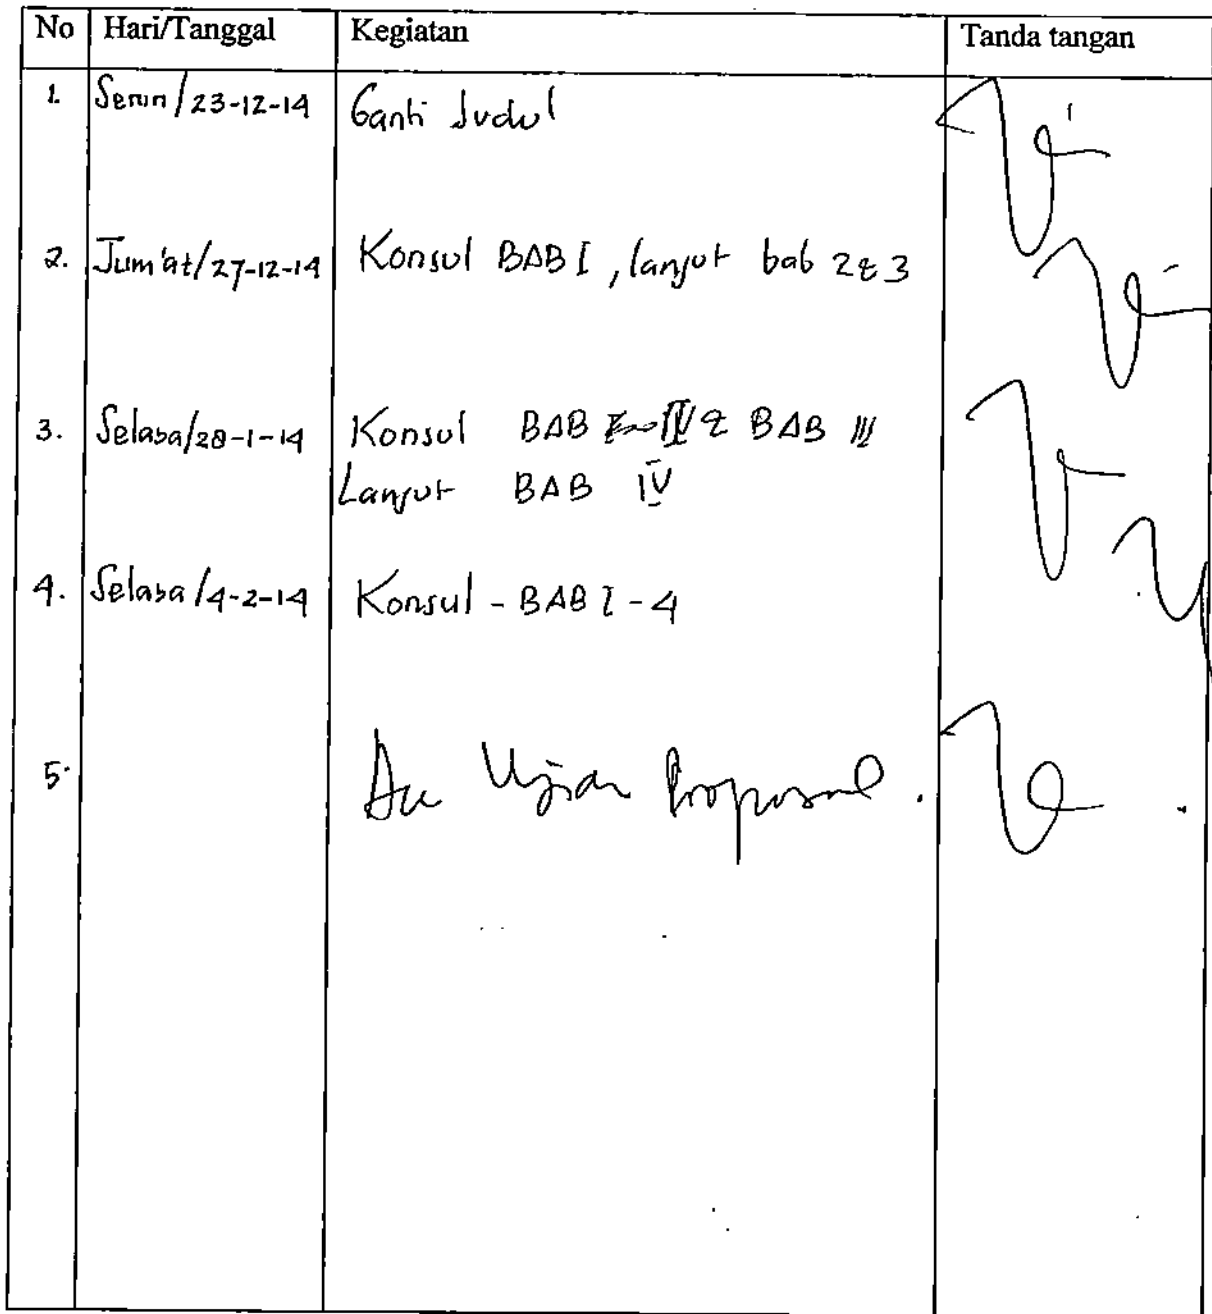 No Hari/Tanggal Kegiatan Tanda tangan
1. Senin/23-12-14 Ganti Judul
2. Jum'at/27-12-14 Konsul BAB I, lanjut bab 2 & 3
3. Selasa/28-1-14 Konsul BAB II & BAB III
Lanjut BAB IV
4. Selasa/4-2-14 Konsul - BAB I - 4
5. Acc Ujian Proposal.